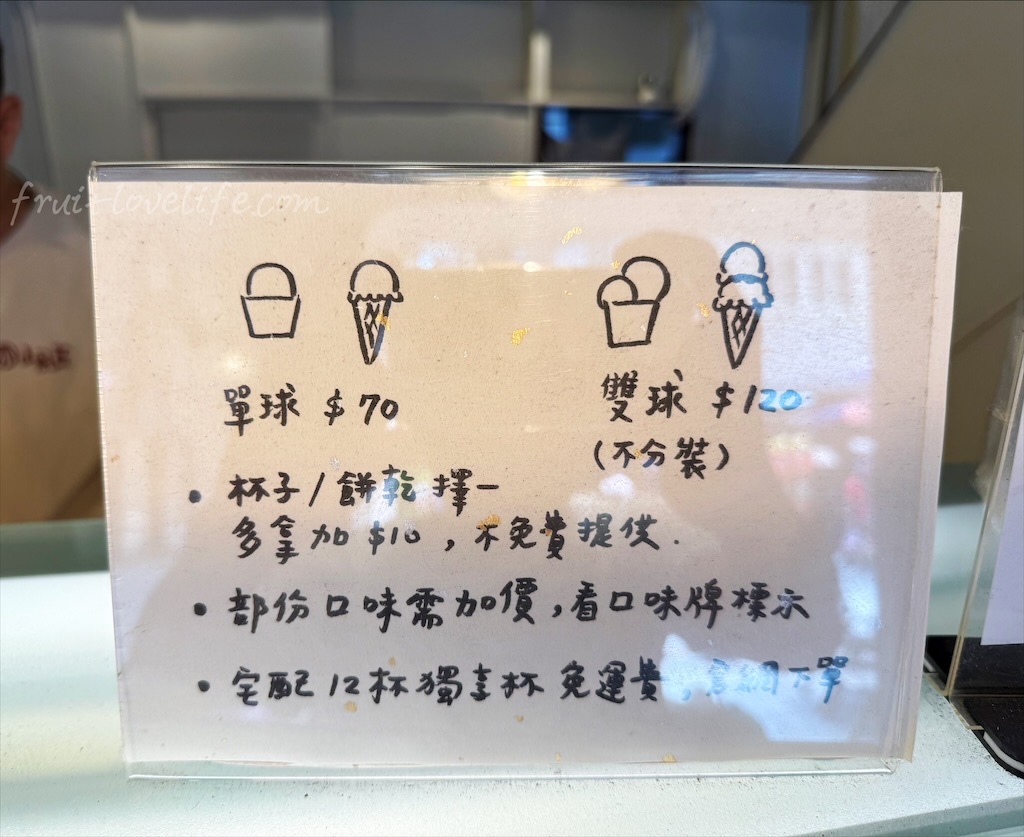 frui-lovelife.com
單球 $70
雙球 $120
(不分裝)
• 杯子/餅乾 擇一
多拿加 $10，不免費提供.
• 部份口味需加價，看口味牌標示
• 宅配 12杯獨享杯 免運費，官網下單